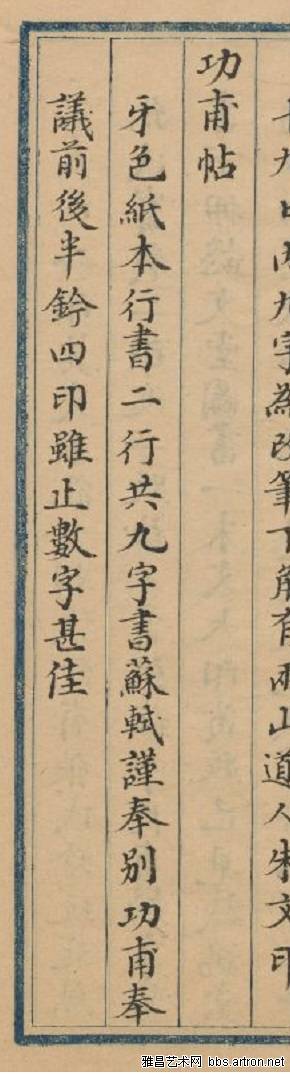 九字為改筆下解有兩山道人朱文印
功甫帖
牙色紙本行書二行共九字書蘇軾謹奉別功甫奉
議前後半鈐四印雖止數字甚佳
雅昌艺术网 bbs.artron.net